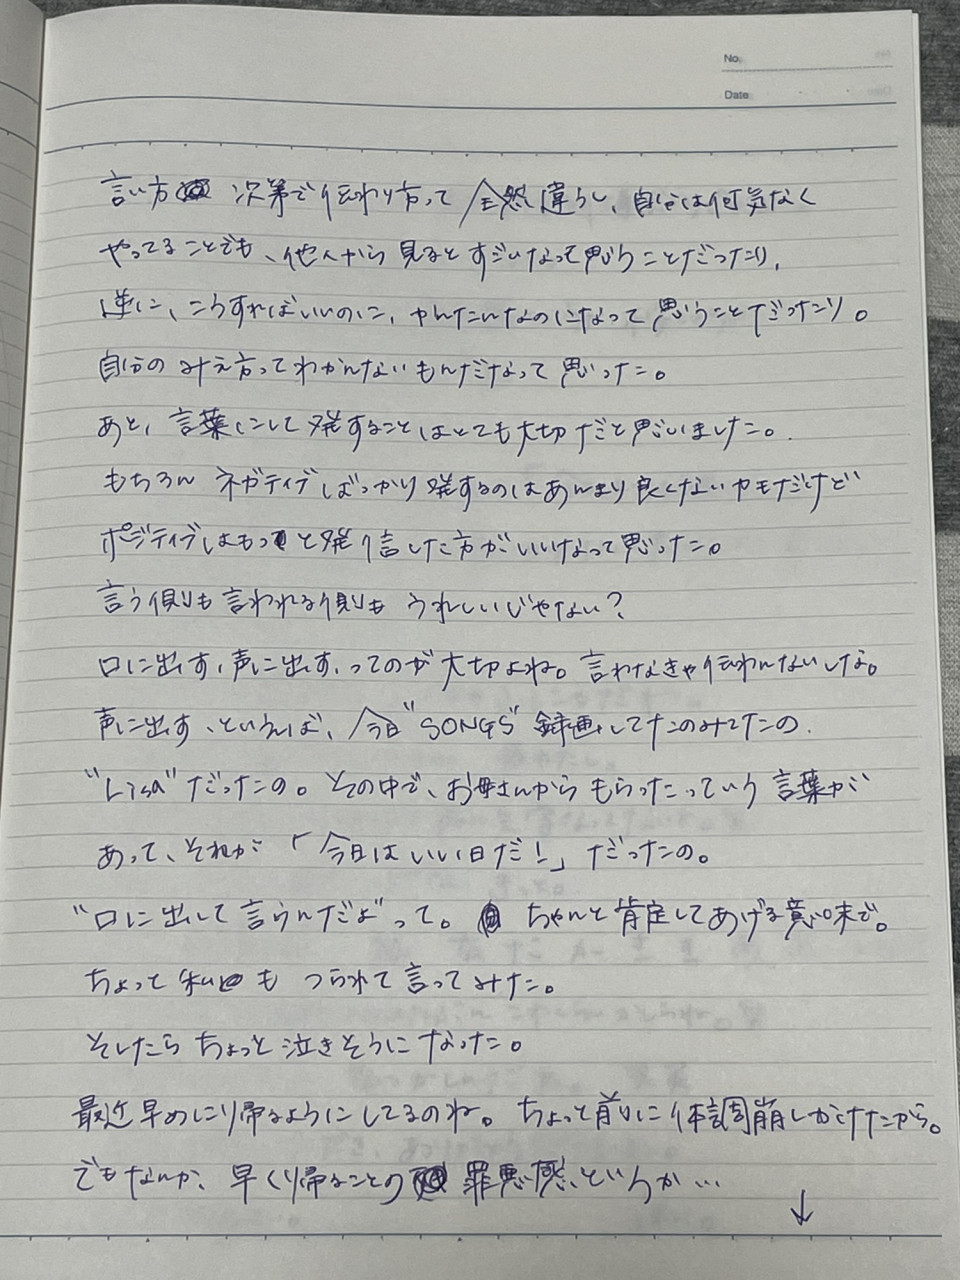 No.
Date
言い方 次第で伝わり方って 全然違うし、自分は何気なく
やってることでも、他人から見るとすごいなって思うことだったり、
逆に、こうすればいいのに、なんでなのになって思うことだったり。
自分のみえ方ってわかんないもんだなって思った。
あと、言葉にして発することはとても大切だと思いました。
もちろんネガティブばっかり発するのはあんまり良くないカモだけど
ポジティブはもっと発信した方がいいなって思った。
言う側も言われる側もうれしいじゃない?
口に出す、声に出す、ってのが大切よね。言わなきゃ伝わんないしな。
声に出す、といえば、今日"SONGS"録画してたのみてたの。
"LiSA"だったの。その中で、お母さんからもらったっていう言葉が
あって、それが「今日はいい日だ!」だったの。
"口に出して言うんだよ"って。 ちゃんと肯定してあげる意味で。
ちょっと私も つられて言ってみた。
そしたらちょっと泣きそうになった。
最近早めに帰るようにしてるのね。ちょっと前に体調崩しかけたから。
でもなんか、早く帰ることの 罪悪感というか…
↓